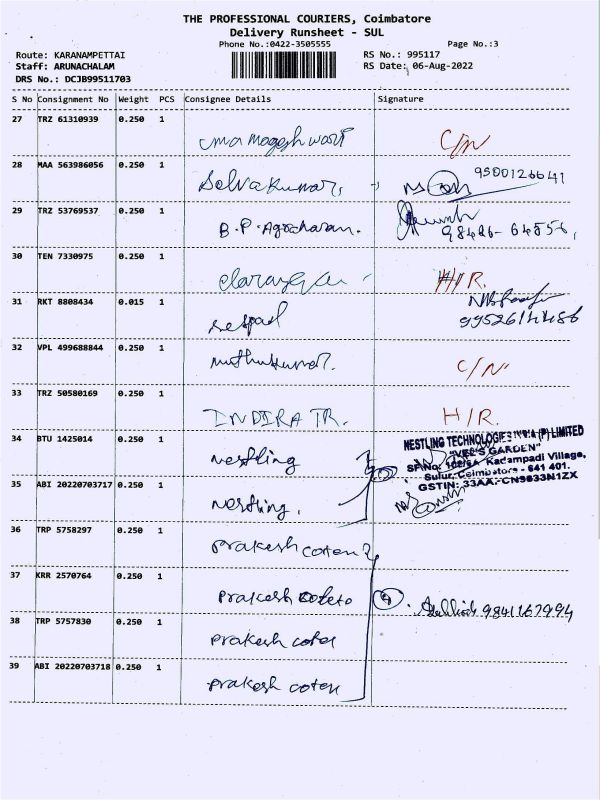 THE PROFESSIONAL COURIERS, Coimbatore
Delivery Runsheet - SUL
Phone No.:0422-3505555 Page No.:3
Route: KARANAMPETTAI RS No.: 995117
Staff: ARUNACHALAM RS Date: 06-Aug-2022
DRS No.: DCJB99511703
S No Consignment No Weight PCS Consignee Details Signature
27 TRZ 61310939 0.250 1
uma mageshwari C/N
28 MAA 563986056 0.250 1
Selvakumar, 9500126641
29 TRZ 53769537 0.250 1
B.P. Agocharan. 98486-64856,
30 TEN 7330975 0.250 1
H/R.
31 RKT 8808434 0.015 1
9952614486
32 VPL 499688844 0.250 1
muthukumar. C/N
33 TRZ 50580169 0.250 1
INDIRA TR. H/R.
34 BTU 1425014 0.250 1
nestling
NESTLING TECHNOLOGIES INDIA (P) LIMITED
"VEL'S GARDEN"
SF.No: Kadampadi Village,
Sulur, Coimbatore - 641 401.
GSTIN: 33AA CN9633N1ZX
35 ABI 20220703717 0.250 1
Nestling.
36 TRP 5758297 0.250 1
prakesh coten
37 KRR 2570764 0.250 1
prakesh 4 9841167994
38 TRP 5757830 0.250 1
prakesh coten
39 ABI 20220703718 0.250 1
prakesh coten